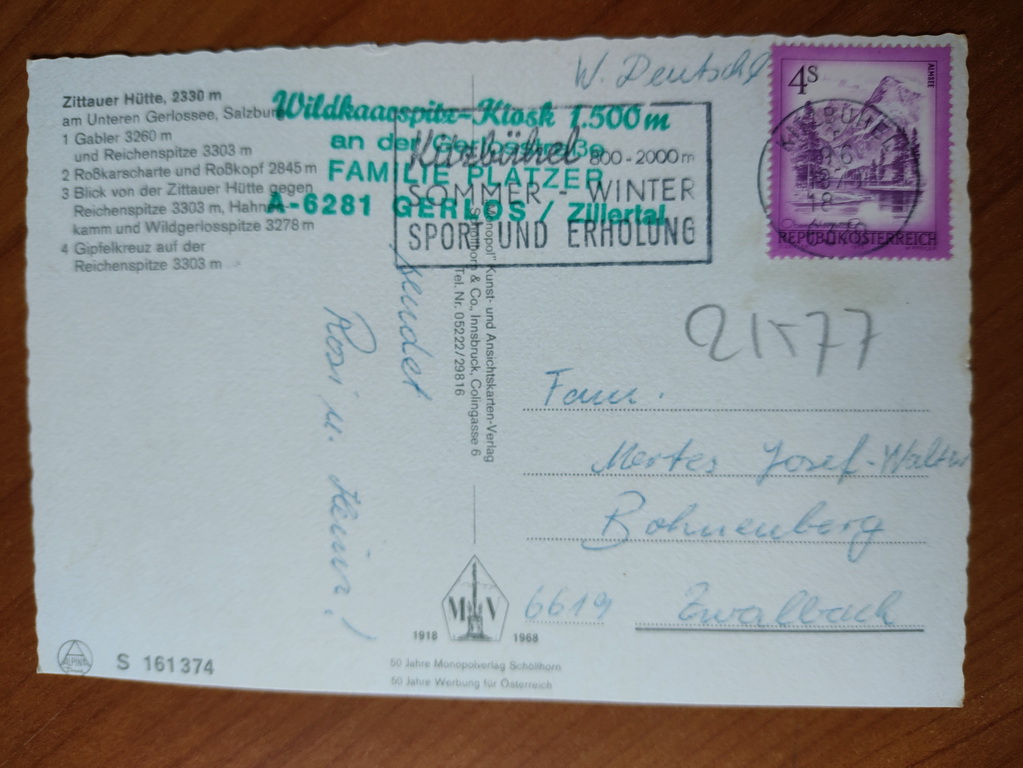 Zittauer Hütte, 2330 m
am Unteren Gerlossee, Salzburg
1 Gabler 3260 m
und Reichenspitze 3303 m
2 Roßkarscharte und Roßkopf 2845 m
3 Blick von der Zittauer Hütte gegen
Reichenspitze 3303 m, Hahn
kamm und Wildgerlosspitze 3278 m
4 Gipfelkreuz auf der
Reichenspitze 3303 m
Wildkaarspitz-Kiosk 1.500 m
an der Gerlosstraße
FAMILIE PLATZER
A-6281 GERLOS / Zillertal
Kitzbühel 800-2000m
SOMMER - WINTER
SPORT UND ERHOLUNG
W. Deutschl
4S
ALMSEE
REPUBLIK ÖSTERREICH
KITZBÜHEL
18
sendet
Rosi u. Heinr!
"Monopol" Kunst- und Ansichtskarten-Verlag
Schöllhorn & Co., Innsbruck, Colingasse 6
Tel. Nr. 05222/29816
21577
Fam.
Mertes Josef-Walter
Bohnenberg
6619 Zwalbach
M V
1918 1968
50 Jahre Monopolverlag Schöllhorn
50 Jahre Werbung für Österreich
ALPINA
S 161374